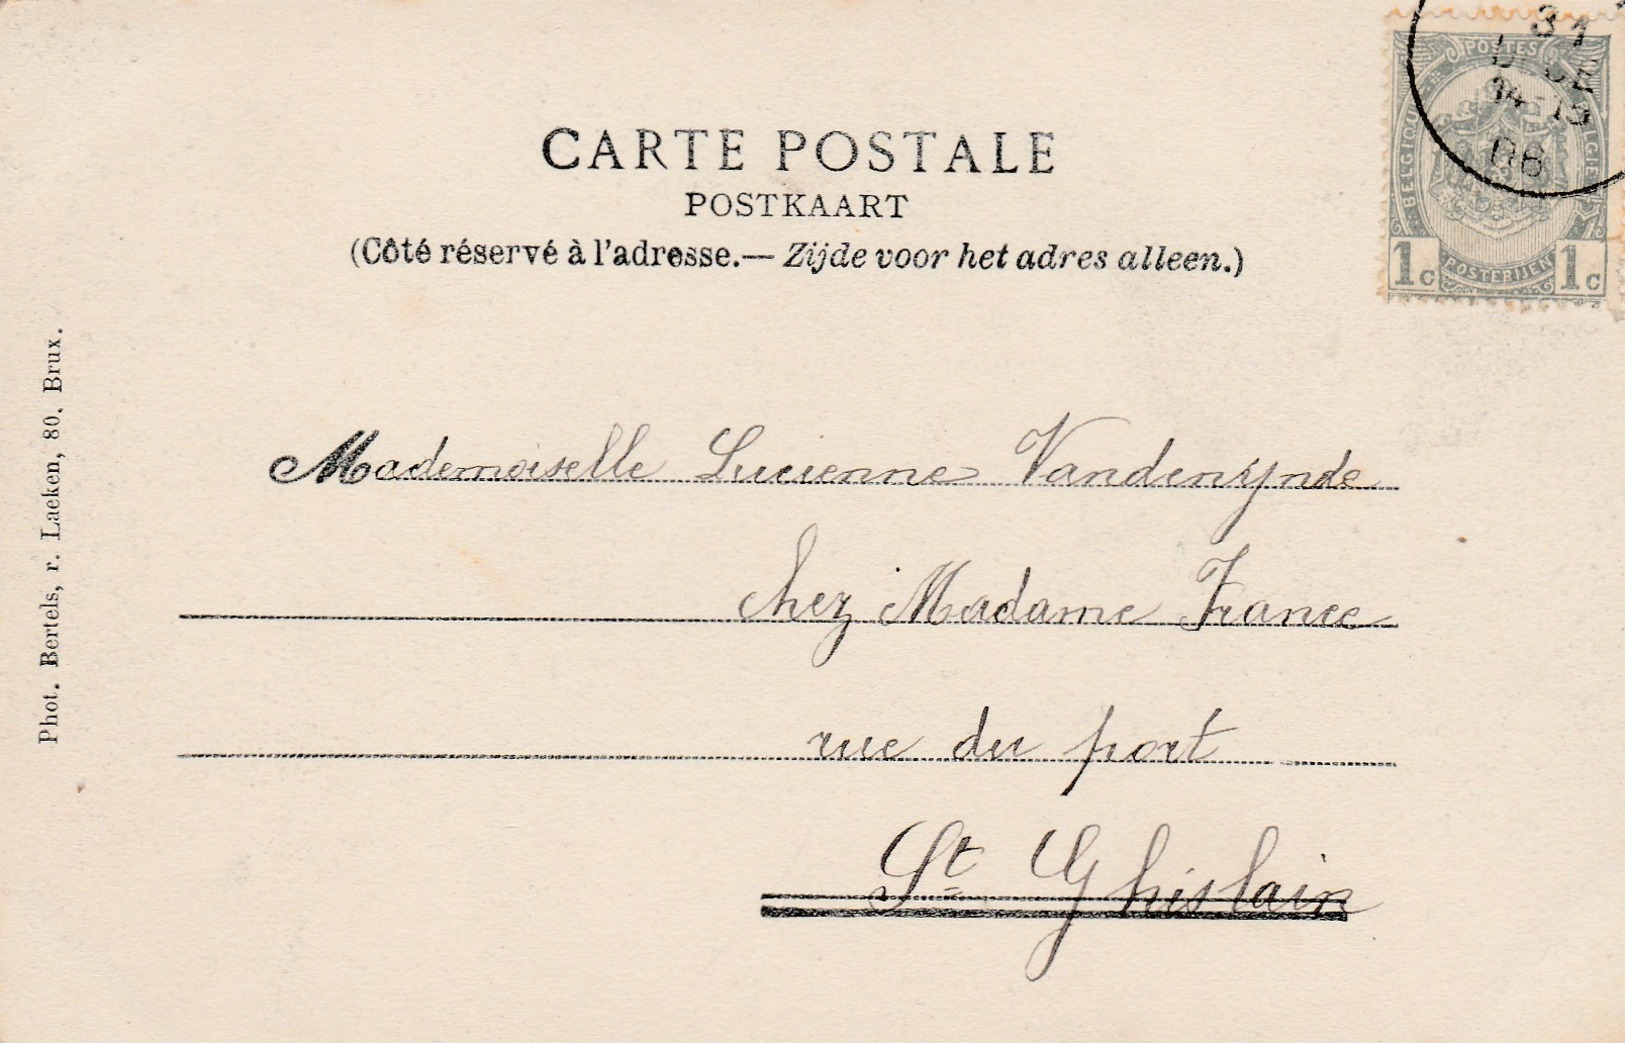 CARTE POSTALE
POSTKAART
(Côté réservé à l'adresse.— Zijde voor het adres alleen.)
POSTES
BELGIQUE
BELGIË
POSTERIJEN
1c 1c
31
14-15
06
Mademoiselle Lucienne Vandenynde
chez Madame France
rue du port
St Ghislain
Phot. Bertels, r. Laeken, 80. Brux.